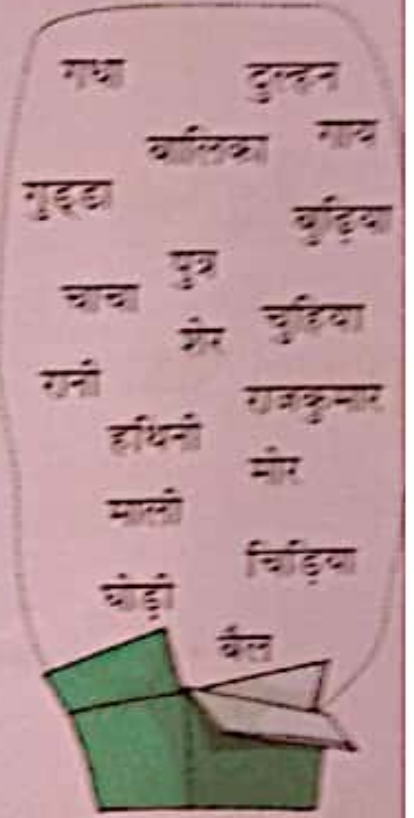 गधा
दुल्हन
बालिका
गाय
गुड्डा
बुढ़िया
पुत्र
चाचा
चुहिया
शेर
रानी
राजकुमार
हथिनी
मोर
माली
चिड़िया
घोड़ी
बैल